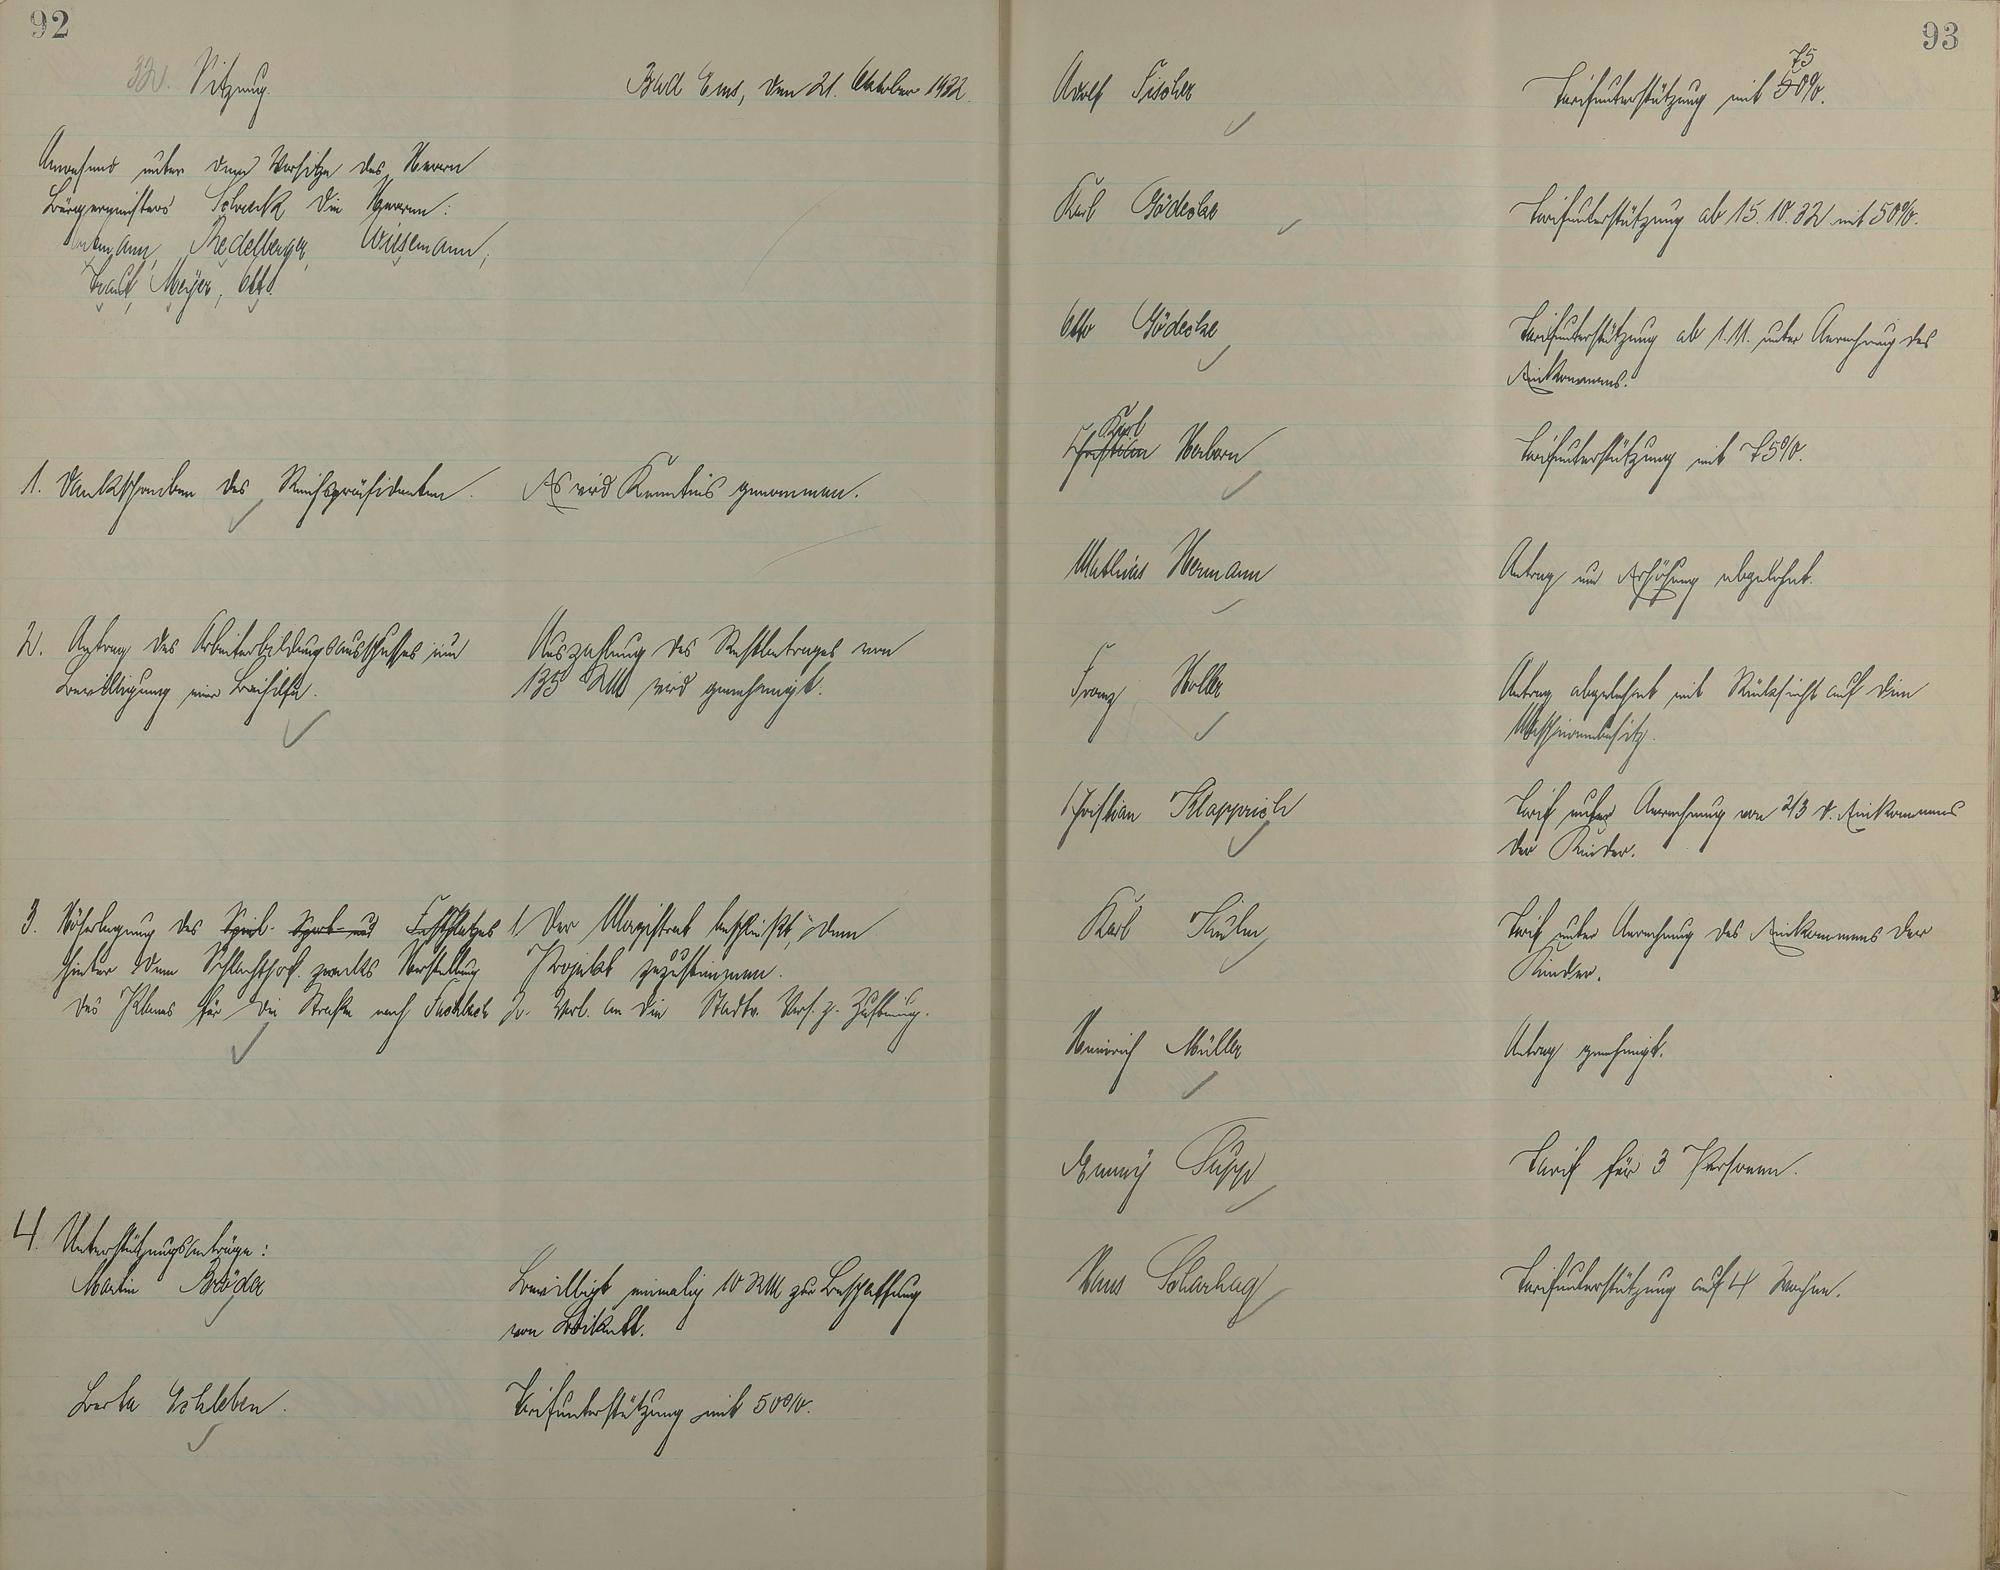 92
32. Sitzung.
Bad Ems, den 21. Oktober 1932.
Anwesend unter dem Vorsitze des Herrn
Bürgermeisters Schreck die Herren:
Redelberger, Wiesemann,
Meyer, Ott.
1. Dankschreiben des Reichspräsidenten.
Es wird Kenntnis genommen.
2. Antrag des Arbeiterbildungsausschusses um
Bewilligung einer Beihilfe.
Auszahlung des Restbetrages von
135 RM wird genehmigt.
3. Höherlegung des Spiel- Sport- und Festplatzes
hinter dem Schlachthof zwecks Herstellung
des Planes für die Straße nach Fachbach
1. Der Magistrat beschließt, dem
Projekt zuzustimmen.
2. Vorl. an die Stadtv. Vers. z. Zustimmg.
4. Unterstützungsanträge:
Martin Bröder
Bewilligt einmalig 10 RM zur Beschaffung
von Brikett.
Berta Eschleben.
Tarifunterstützung mit 50%.
93
Adolf Fischer
75
Tarifunterstützung mit 50%.
Karl Gödecke
Tarifunterstützung ab 15.10.32 mit 50%.
Otto Gödecke
Tarifunterstützung ab 1.11. unter Anrechnung des
Einkommens.
Karl
Christian Herborn
Tarifunterstützung mit 75%.
Mathias Hermann
Antrag um Erhöhung abgelehnt.
Franz Holler
Antrag abgelehnt mit Rücksicht auf den
Maschinenbesitz.
Christian Klapprich
Tarif unter Anrechnung von 2/3 d. Einkommens
der Kinder.
Karl Kulm
Tarif unter Anrechnung des Einkommens der
Kinder.
Heinrich Müller
Antrag genehmigt.
Emmy Supp
Tarif für 3 Personen.
Hans Scharhag
Tarifunterstützung auf 4 Wochen.